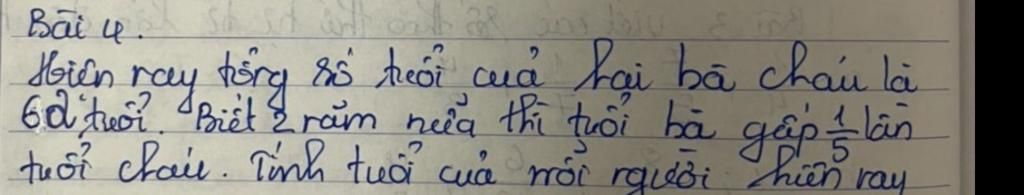 Bài 4.
Hiện nay tổng số tuổi của hai bà cháu là
62 tuổi. Biết 2 năm nữa thì tuổi bà gấp 1/5 lần
tuổi cháu. Tính tuổi của mỗi người hiện nay